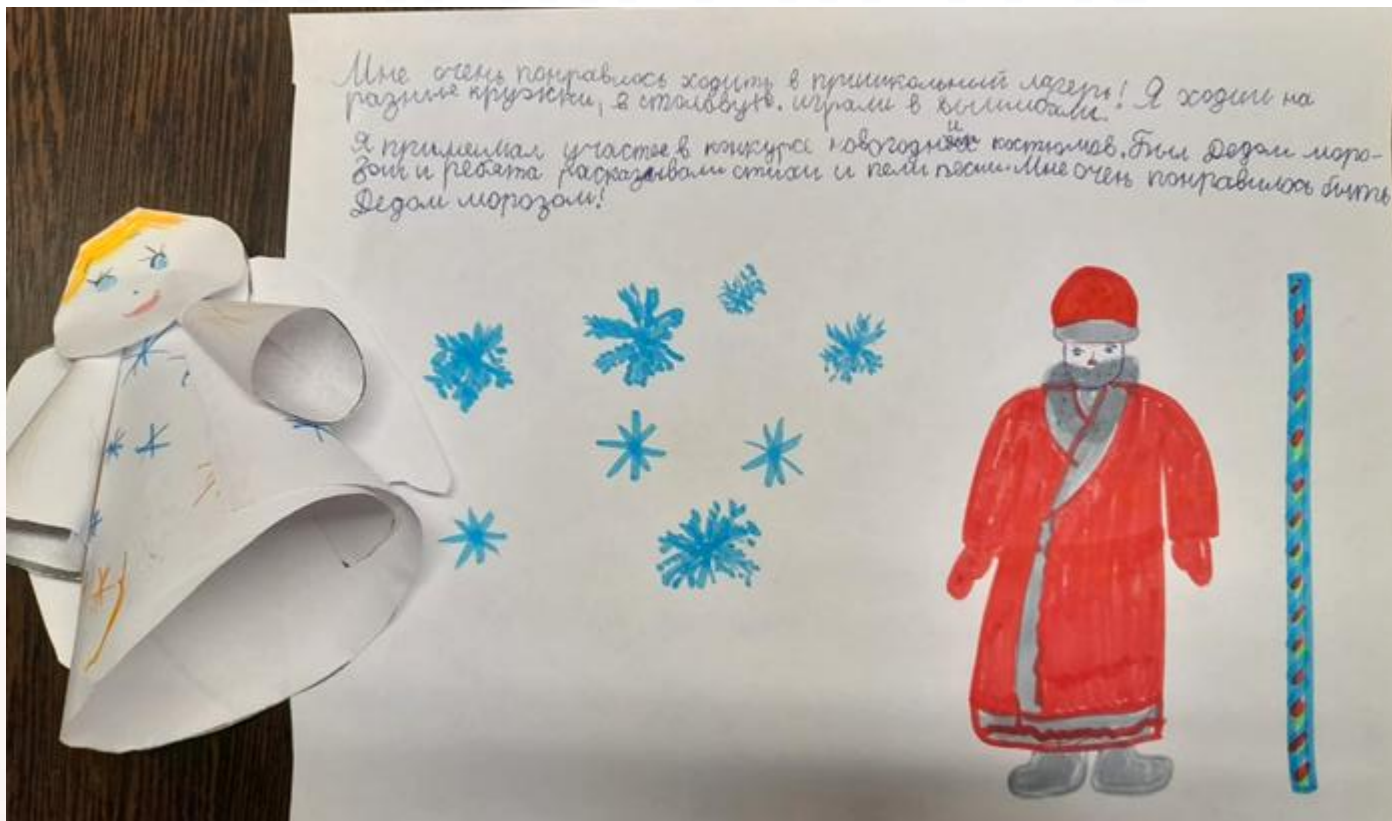 Мне очень понравлось ходить в пришкольный лагерь! Я ходил на
разные кружки, в столовую. играли в вышибали.
Я принимал участие в конкурсе новогодних костюмов. Был Дедом моро-
зом и ребята расказывали стихи и пели песни. Мне очень понравилось быть
Дедом морозом!